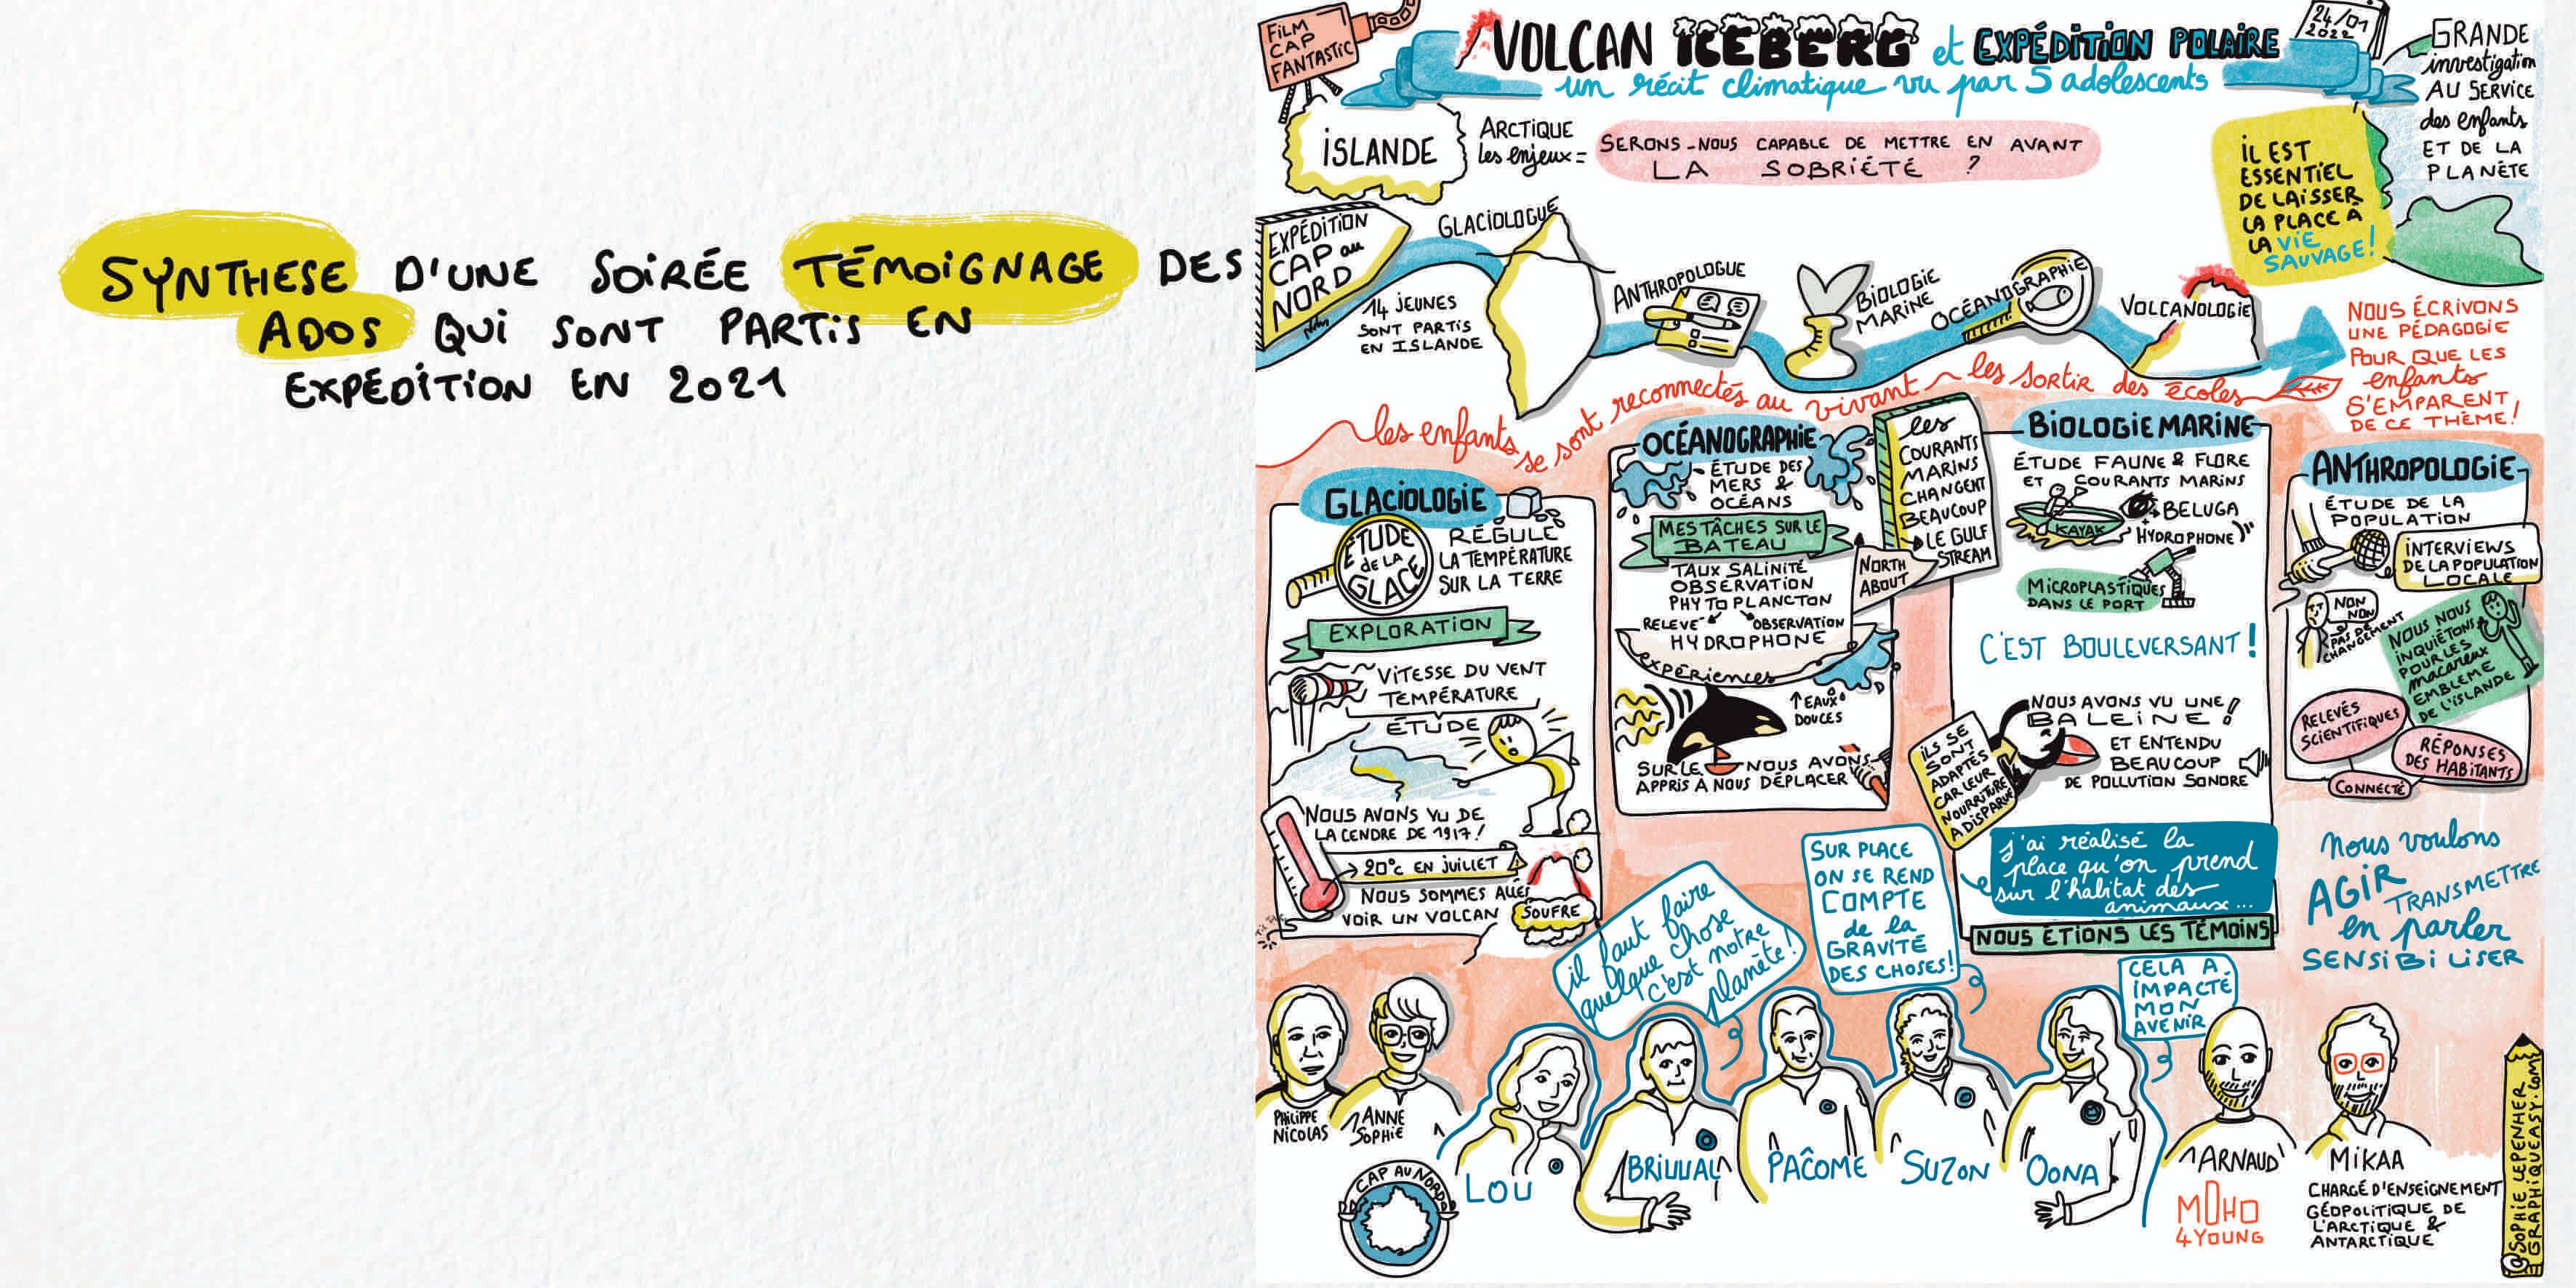 SYNTHESE D'UNE SOIRÉE TÉMOIGNAGE DES
ADOS QUI SONT PARTIS EN
EXPÉDITION EN 2021
FILM
CAP
FANTASTIC
VOLCAN ICEBERG et EXPÉDITION POLAIRE
un récit climatique vu par 5 adolescents
24/01
2022
GRANDE
investigation
AU SERVICE
des enfants
ET DE LA
PLANÈTE
ISLANDE
ARCTIQUE
les enjeux =
SERONS-NOUS CAPABLE DE METTRE EN AVANT
LA SOBRIÉTÉ ?
IL EST
ESSENTIEL
DE LAISSER
LA PLACE À
LA VIE
SAUVAGE!
EXPÉDITION
CAP au
NORD
14 JEUNES
SONT PARTIS
EN ISLANDE
GLACIOLOGUE
ANTHROPOLOGUE
BIOLOGIE
MARINE
OCÉANOGRAPHIE
VOLCANOLOGIE
NOUS ÉCRIVONS
UNE PÉDAGOGIE
POUR QUE LES
enfants
S'EMPARENT
DE CE THÈME!
les enfants se sont reconnectés au vivant ~ les sortir des écoles
GLACIOLOGIE
ÉTUDE
de LA
GLACE
RÉGULE
LA TEMPÉRATURE
SUR LA TERRE
EXPLORATION
VITESSE DU VENT
TEMPÉRATURE
ÉTUDE
NOUS AVONS VU DE
LA CENDRE DE 1917!
→ 20°C EN JUILLET
NOUS SOMMES ALLÉS
VOIR UN VOLCAN
SOUFRE
OCÉANOGRAPHIE
- ÉTUDE DES
MERS &
OCÉANS
MES TÂCHES SUR LE
BATEAU
TAUX SALINITÉ
OBSERVATION
PHYTOPLANCTON
RELEVÉ OBSERVATION
HYDROPHONE
expériences
↑ EAUX
DOUCES
SUR LE NOUS AVONS
APPRIS À NOUS DÉPLACER
les
COURANTS
MARINS
CHANGENT
BEAUCOUP
LE GULF
STREAM
NORTH
ABOUT
BIOLOGIE MARINE
ÉTUDE FAUNE & FLORE
ET COURANTS MARINS
KAYAK
BELUGA
HYDROPHONE
MICROPLASTIQUES
DANS LE PORT
C'EST BOULEVERSANT!
NOUS AVONS VU UNE
BALEINE!
ET ENTENDU
BEAUCOUP
DE POLLUTION SONORE
ILS SE
SONT
ADAPTÉS
CAR LEUR
NOURRITURE
A DISPARUE
j'ai réalisé la
place qu'on prend
sur l'habitat des
animaux...
NOUS ÉTIONS LES TÉMOINS
ANTHROPOLOGIE
ÉTUDE DE LA
POPULATION
INTERVIEWS
DE LA POPULATION
LOCALE
NON
NON
PAS DE
CHANGEMENT
NOUS NOUS
INQUIÉTONS
POUR LES
macareux
EMBLEME
DE L'ISLANDE
RELEVÉS
SCIENTIFIQUES
RÉPONSES
DES HABITANTS
CONNECTÉ
Nous voulons
AGIR TRANSMETTRE
en parler
SENSIBILISER
il faut faire
quelque chose
c'est notre
planète!
SUR PLACE
ON SE REND
COMPTE
de la
GRAVITÉ
DES CHOSES!
CELA A
IMPACTÉ
MON
AVENIR
PHILIPPE
NICOLAS
ANNE
SOPHIE
CAP AU NORD
LOU
PACÔME
SUZON
OONA
ARNAUD
MOHO
4YOUNG
MIKAA
CHARGÉ D'ENSEIGNEMENT
GÉOPOLITIQUE DE
L'ARCTIQUE &
ANTARCTIQUE
@SOPHIE LEPENHER
GRAPHIQUEASY.COM